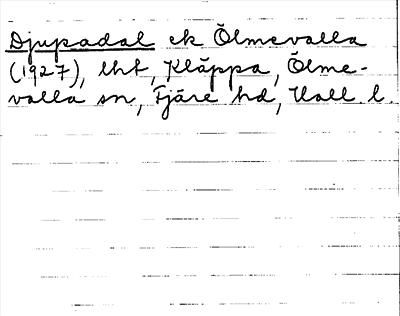 Djupadal ek Ölmevalla
(1927), lht, Kläppa, Ölme-
valla sn, Fjäre hd, Hall. l.